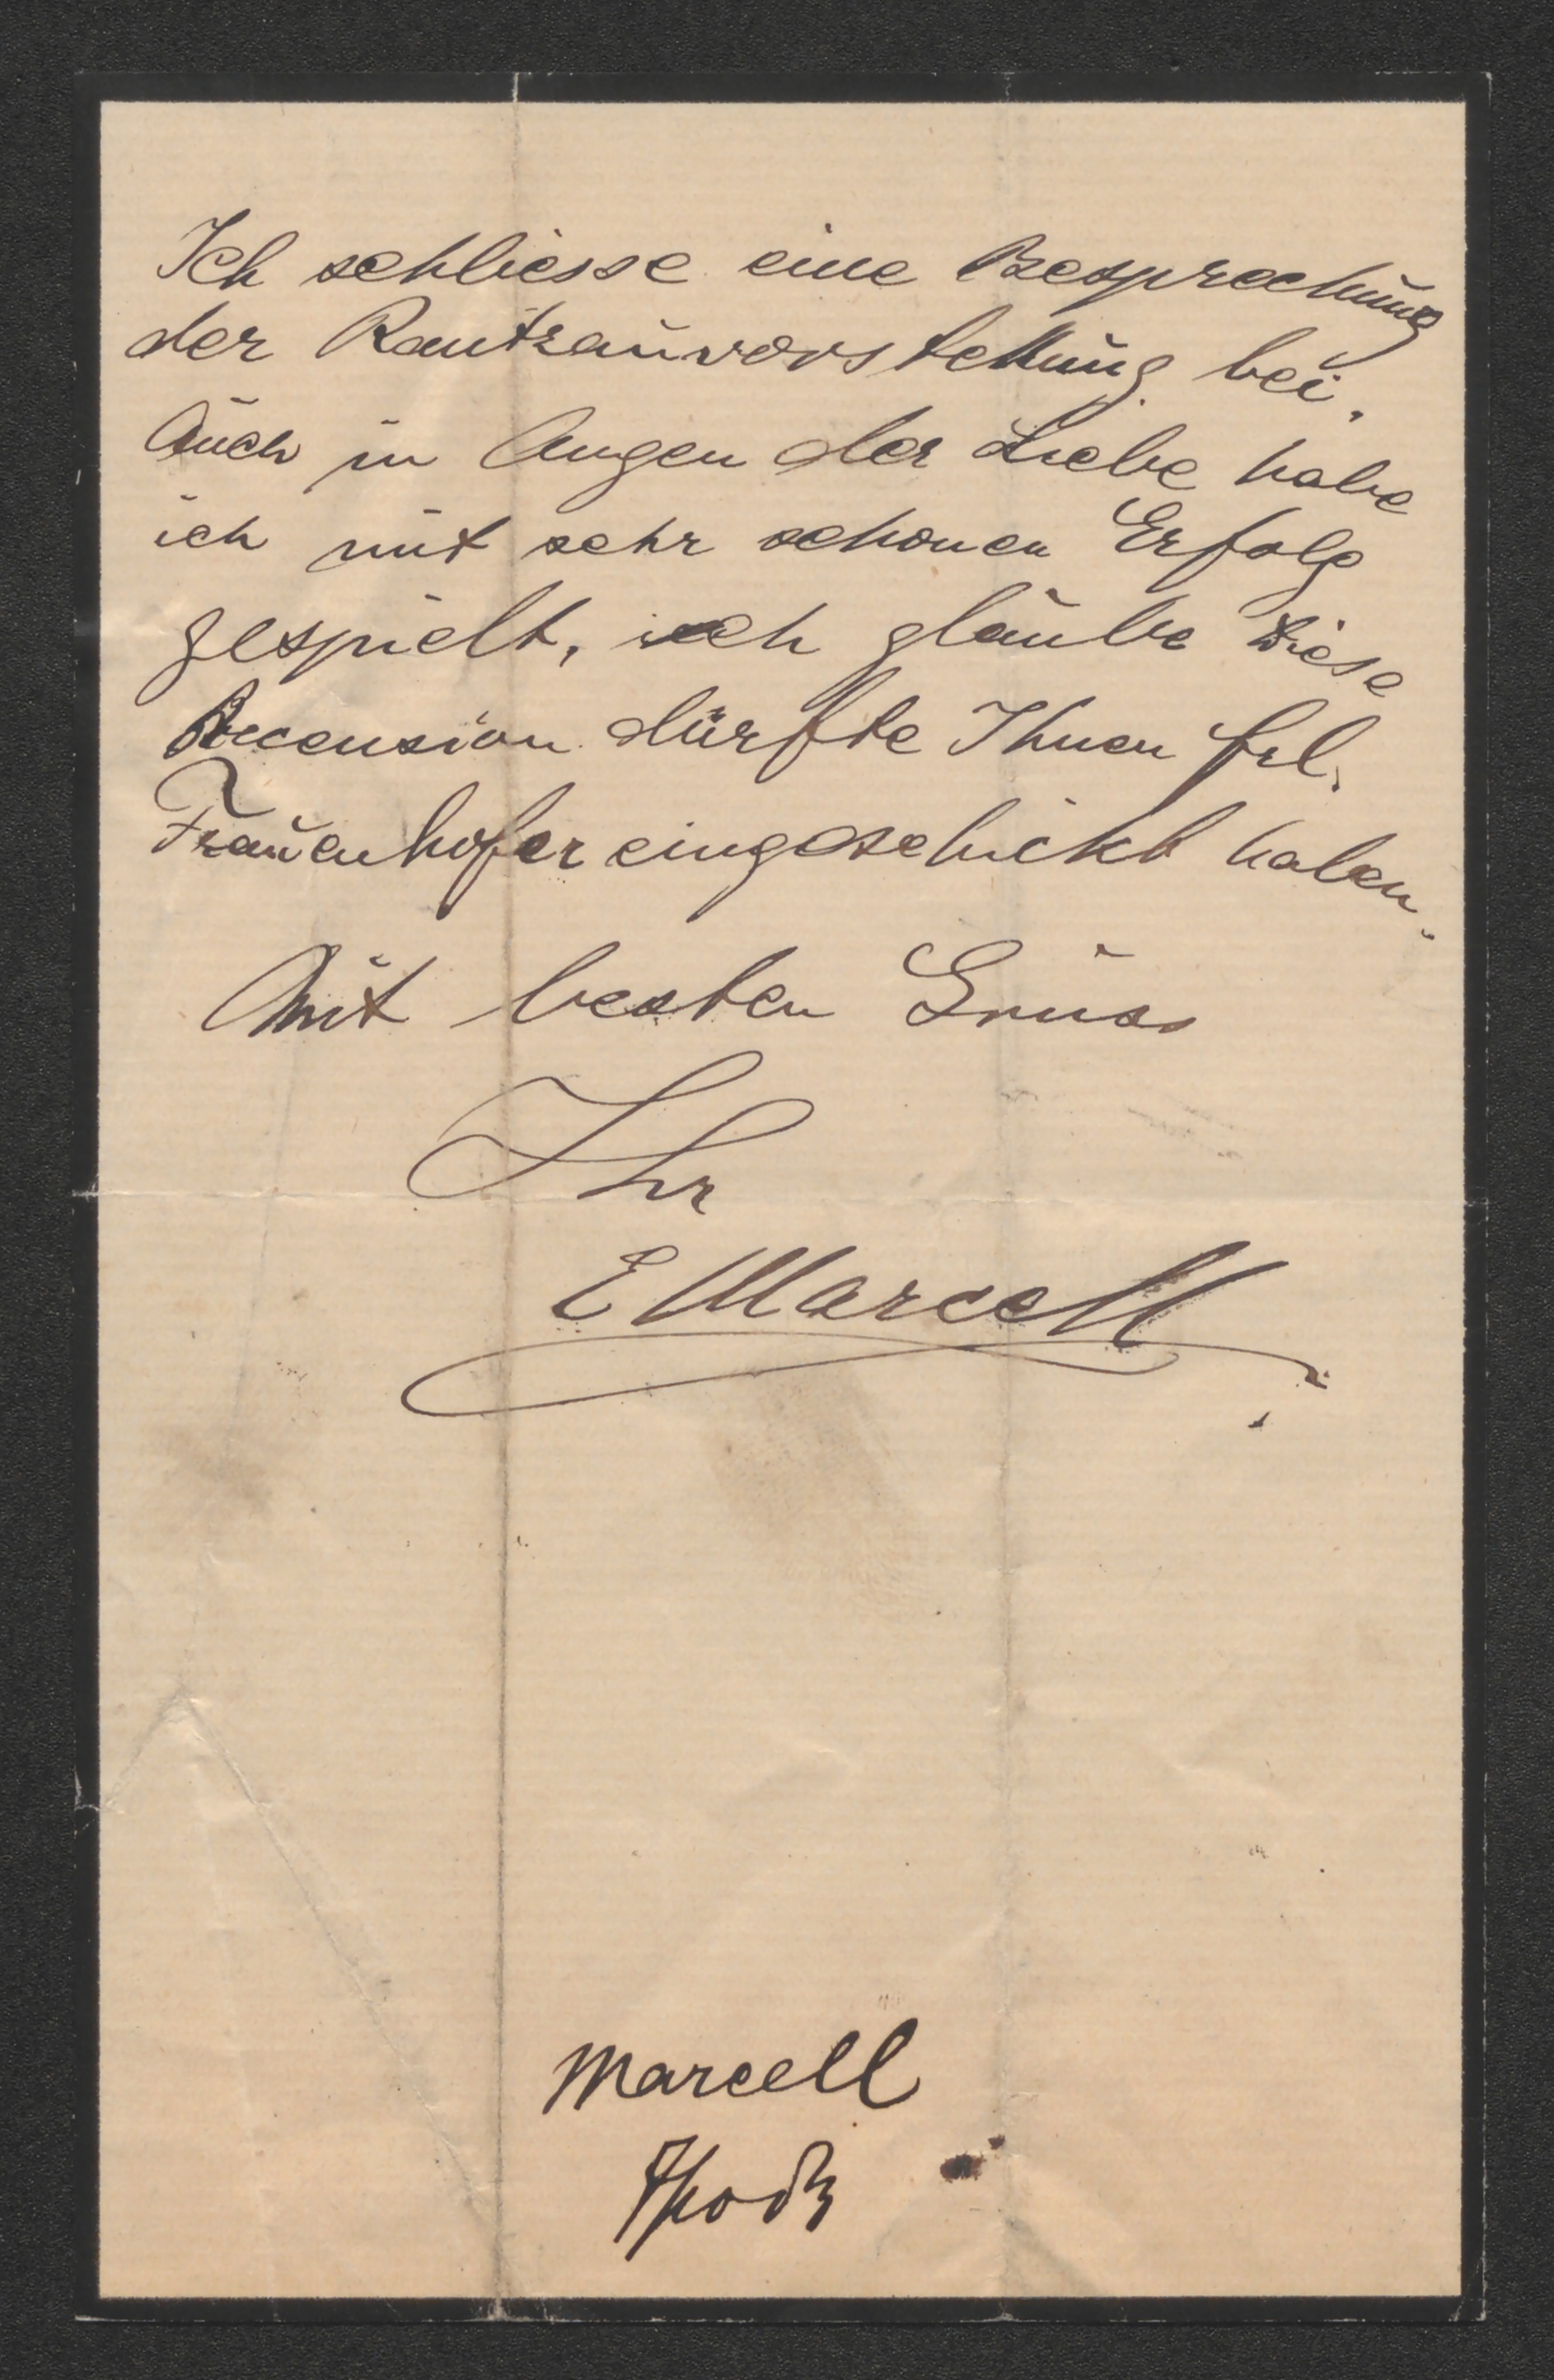 Ich schliesse eine Besprechung
der Rantzauvorstellung bei.
Auch in Augen der Liebe habe
ich mit sehr schonen Erfolg
gespielt, ich glaube diese
Recension dürfte Ihnen frl.
Frauenhofer eingeschickt haben.
Mit besten Gruss
Ihr
E Marcell
Marcell